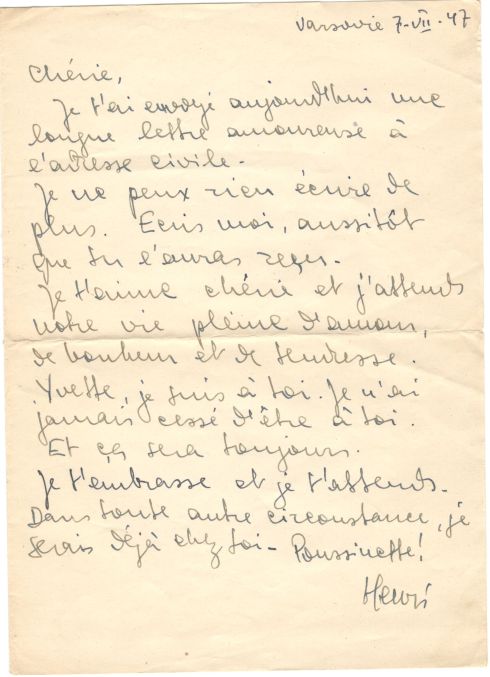 Varsovie 7-VII-47
Chérie,
Je t'ai envoyé aujourd'hui une
longue lettre amoureuse à
l'adresse civile.
Je ne peux rien écrire de
plus. Ecris moi, aussitôt
que tu l'auras reçu.
Je t'aime chérie et j'attends
notre vie pleine d'amour,
de bonheur et de tendresse.
Yvette, je suis à toi. Je n'ai
jamais cessé d'être à toi.
Et ça sera toujours.
Je t'embrasse et je t'attends.
Dans toute autre circonstance, je
serais déjà chez toi - Poussinette!
Henri